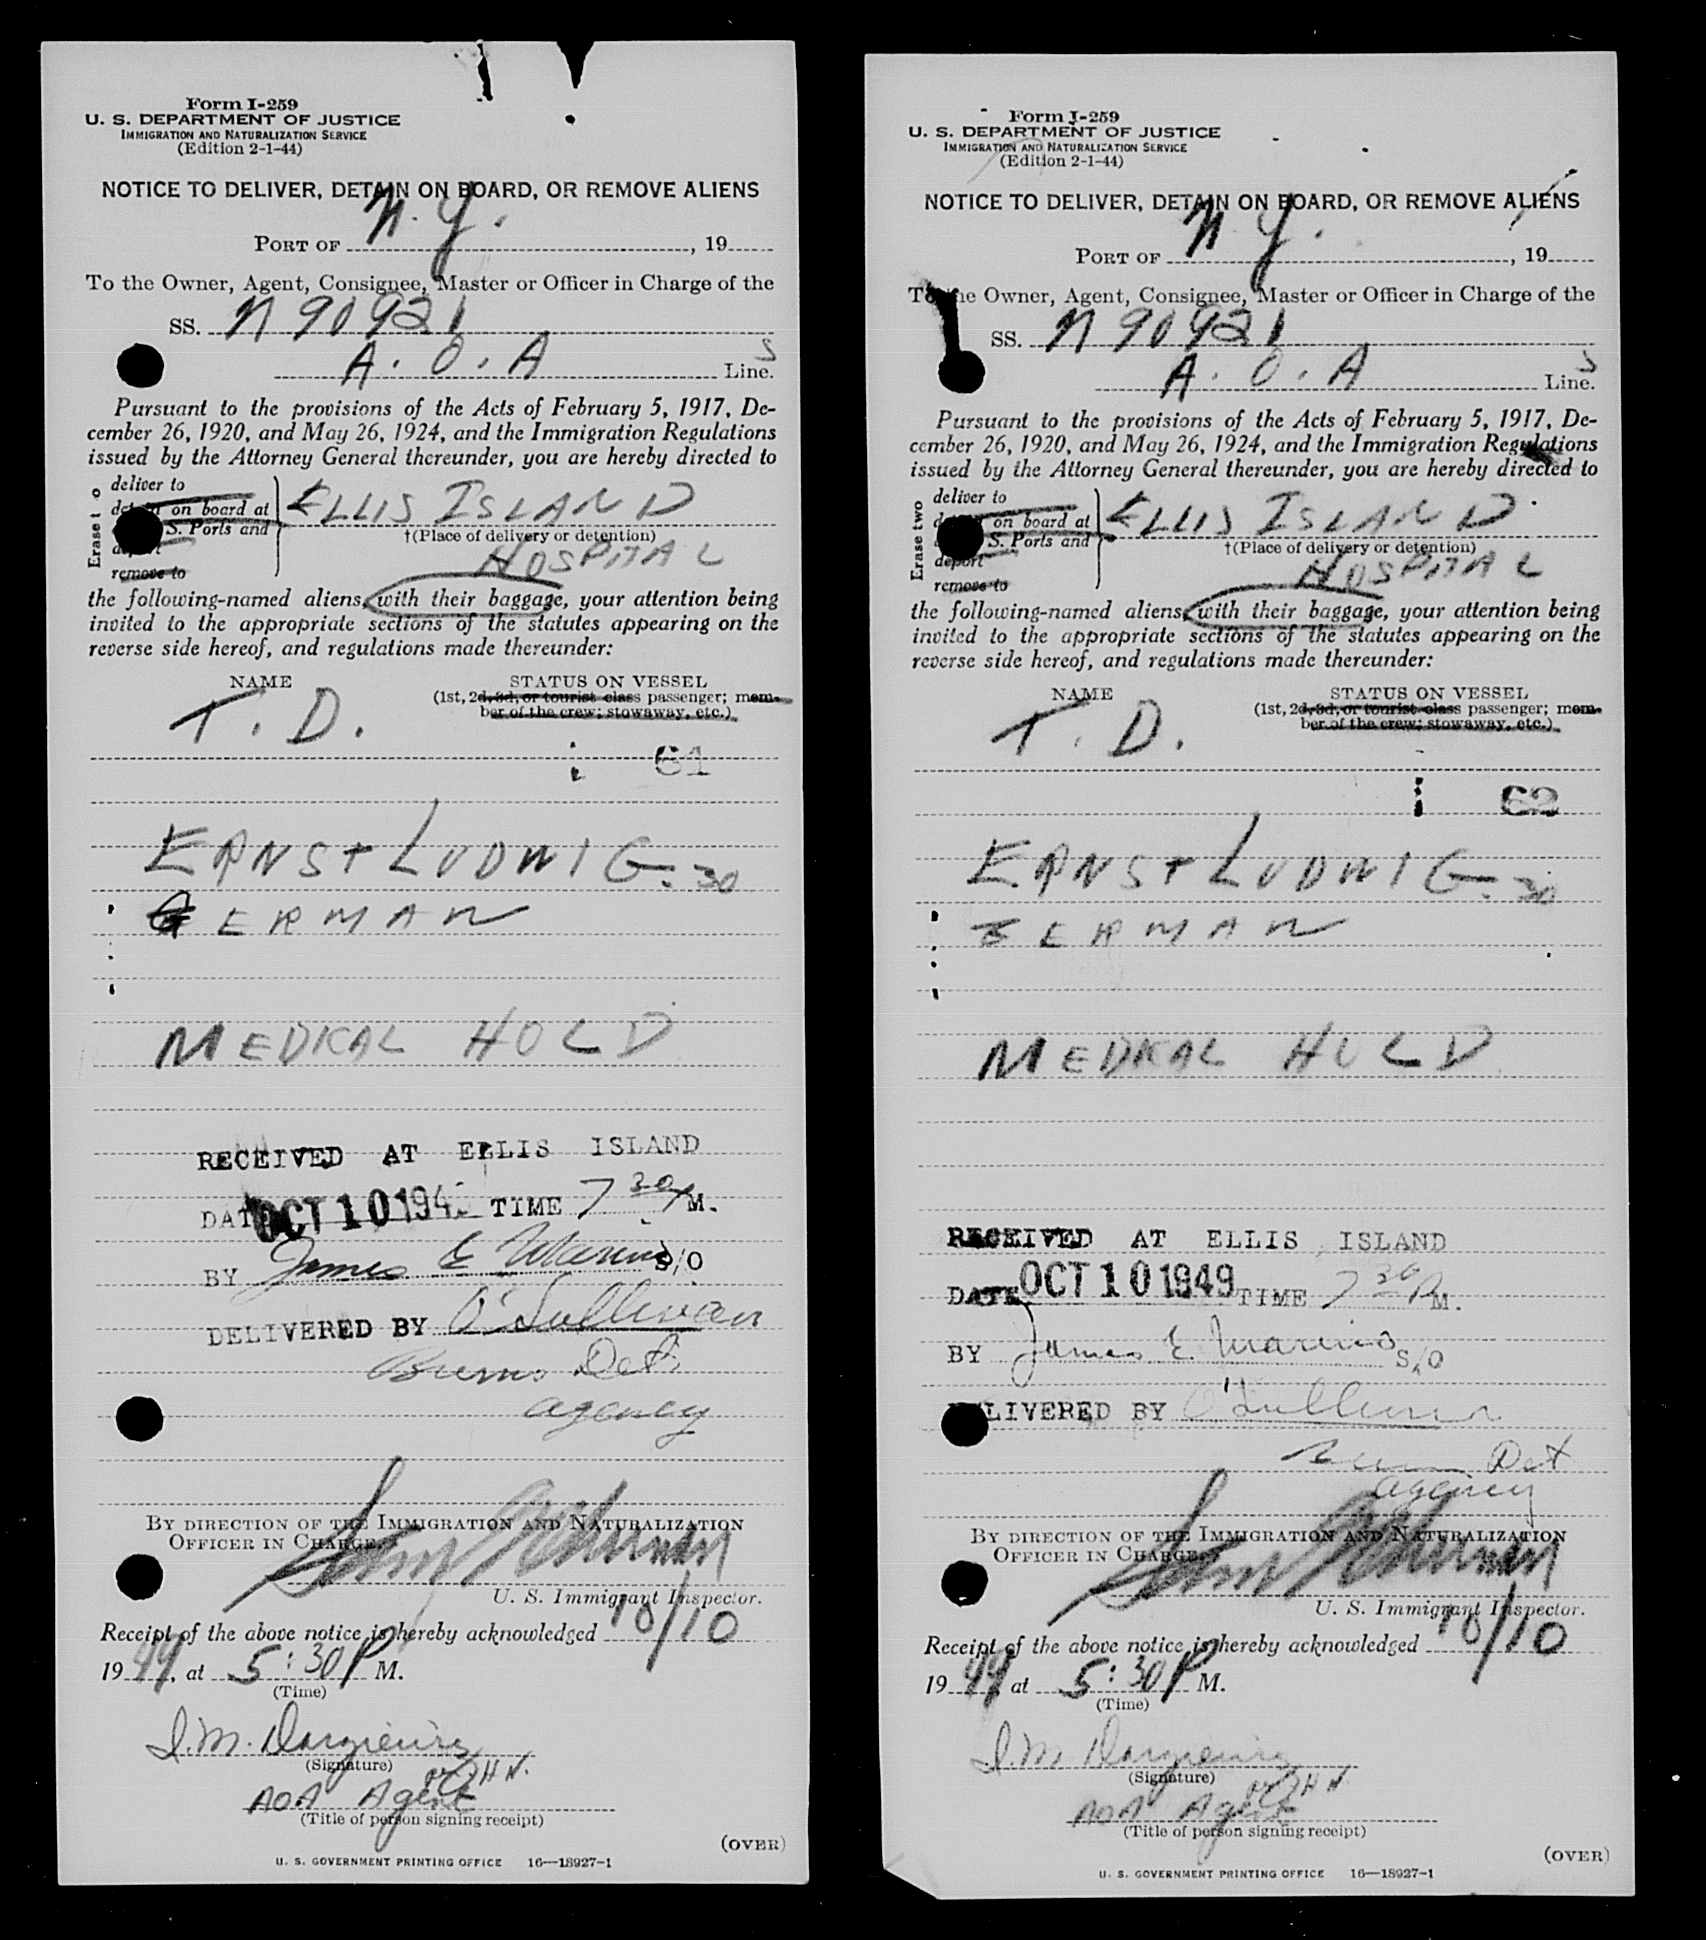 Form I-259
U. S. DEPARTMENT OF JUSTICE
IMMIGRATION AND NATURALIZATION SERVICE
(Edition 2-1-44)
NOTICE TO DELIVER, DETAIN ON BOARD, OR REMOVE ALIENS
PORT OF N.Y. , 19
To the Owner, Agent, Consignee, Master or Officer in Charge of the
SS. N90921
A.O.A Line.s
Pursuant to the provisions of the Acts of February 5, 1917, De-
cember 26, 1920, and May 26, 1924, and the Immigration Regulations
issued by the Attorney General thereunder, you are hereby directed to
Erase t o
deliver to
on board at ELLIS ISLAND
S. Ports and
†(Place of delivery or detention)
HOSPITAL
remove to
the following-named aliens, with their baggage, your attention being
invited to the appropriate sections of the statutes appearing on the
reverse side hereof, and regulations made thereunder:
NAME STATUS ON VESSEL
(1st, 2d, 3d, or tourist class passenger; mem-
ber of the crew; stowaway, etc.)
T. D.
61
ERNST LUDWIG-30
GERMAN
MEDICAL HOLD
RECEIVED AT ELLIS ISLAND
DATE OCT 10 194 TIME 7 30 PM.
BY James E Marino S/O
DELIVERED BY O'Sullivan
Burns Det
agency
BY DIRECTION OF THE IMMIGRATION AND NATURALIZATION
OFFICER IN CHARGE.
U. S. Immigrant Inspector.
Receipt of the above notice is hereby acknowledged 10/10
1949, at 5:30 P M.
(Time)
(Signature)
AOA Agent
(Title of person signing receipt)
(OVER)
U. S. GOVERNMENT PRINTING OFFICE 16—18927-1
Form I-259
U. S. DEPARTMENT OF JUSTICE
IMMIGRATION AND NATURALIZATION SERVICE
(Edition 2-1-44)
NOTICE TO DELIVER, DETAIN ON BOARD, OR REMOVE ALIENS
PORT OF N.Y. , 19
To the Owner, Agent, Consignee, Master or Officer in Charge of the
SS. N90921
A.O.A Line.s
Pursuant to the provisions of the Acts of February 5, 1917, De-
cember 26, 1920, and May 26, 1924, and the Immigration Regulations
issued by the Attorney General thereunder, you are hereby directed to
Erase two
deliver to
on board at ELLIS ISLAND.
S. Ports and
†(Place of delivery or detention)
deport HOSPITAL
remove to
the following-named aliens, with their baggage, your attention being
invited to the appropriate sections of the statutes appearing on the
reverse side hereof, and regulations made thereunder:
NAME STATUS ON VESSEL
(1st, 2d, 3d, or tourist class passenger; mem-
ber of the crew; stowaway, etc.)
T. D.
62
ERNST LUDWIG-30
GERMAN
MEDICAL HOLD
RECEIVED AT ELLIS ISLAND
DATE OCT 10 1949 TIME 7 30 PM.
BY James E. Marino S/O
DELIVERED BY O'Sullivan
Burns Det
agency
BY DIRECTION OF THE IMMIGRATION AND NATURALIZATION
OFFICER IN CHARGE.
U. S. Immigrant Inspector.
Receipt of the above notice is hereby acknowledged 10/10
1949 at 5:30 P M.
(Time)
(Signature)
AOA Agent
(Title of person signing receipt)
(OVER)
U. S. GOVERNMENT PRINTING OFFICE 16—18927-1